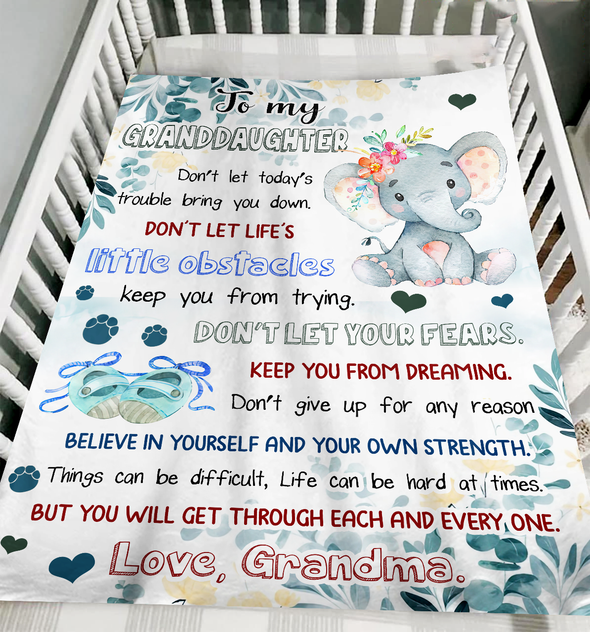 To my
GRANDDAUGHTER
Don't let today's
trouble bring you down.
DON'T LET LIFE'S
little obstacles
keep you from trying.
DON'T LET YOUR FEARS.
KEEP YOU FROM DREAMING.
Don't give up for any reason
BELIEVE IN YOURSELF AND YOUR OWN STRENGTH.
Things can be difficult, Life can be hard at times.
BUT YOU WILL GET THROUGH EACH AND EVERY ONE.
Love, Grandma.